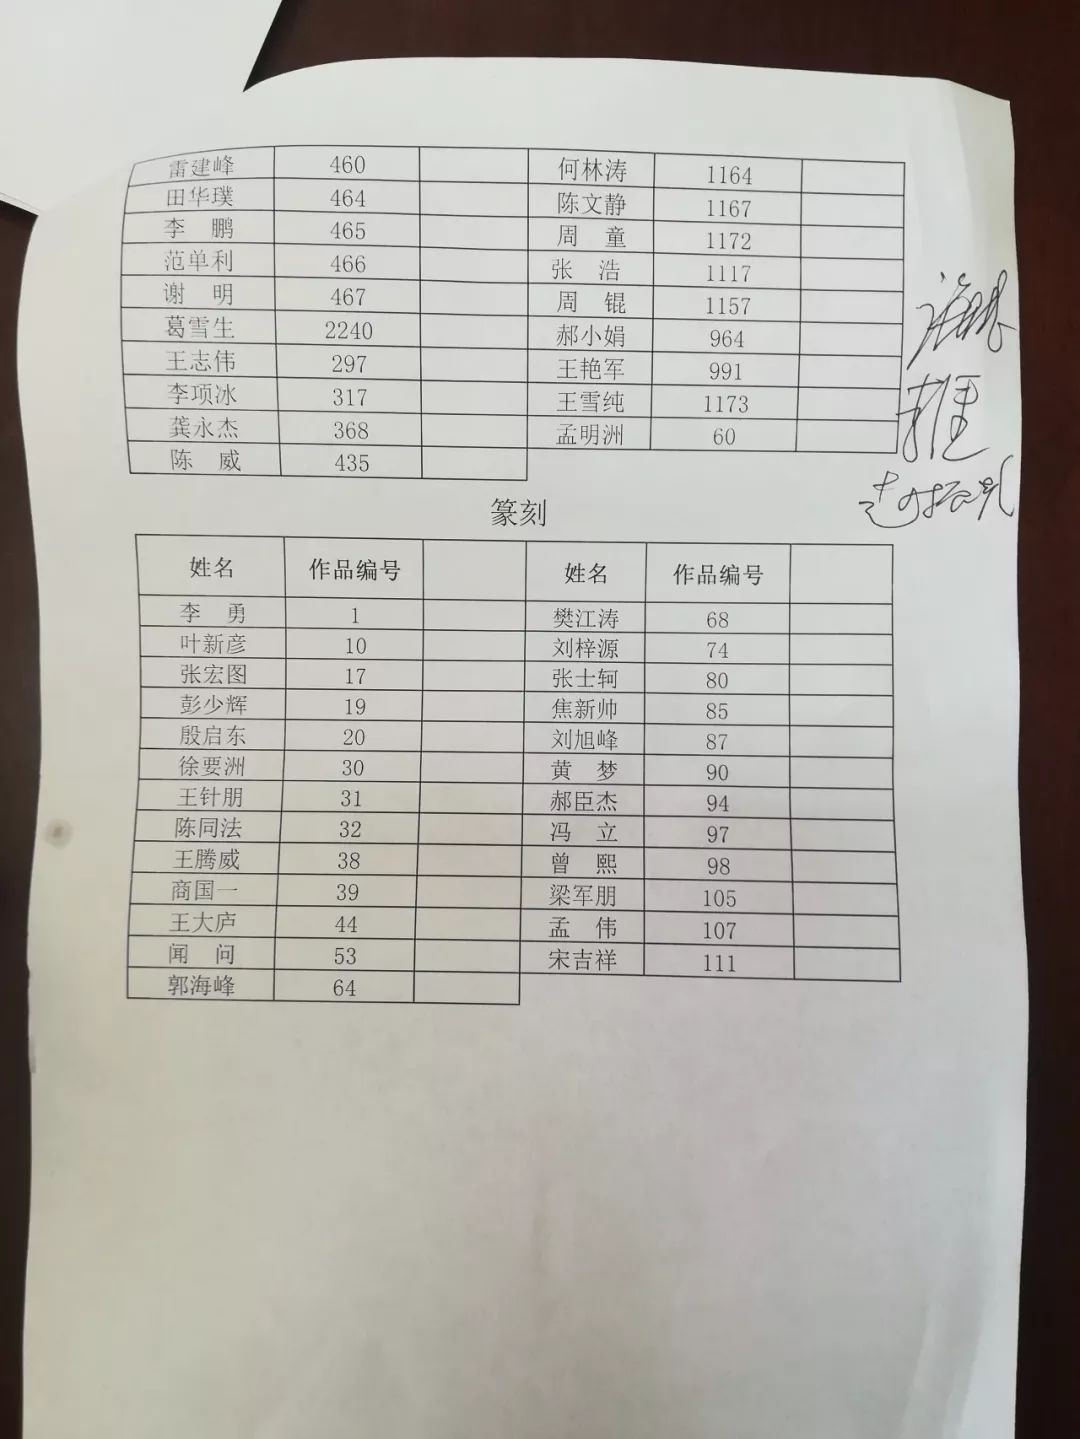 雷建峰 460 何林涛 1164
田华璞 464 陈文静 1167
李 鹏 465 周 童 1172
范单利 466 张 浩 1117
谢 明 467 周 锟 1157
葛雪生 2240 郝小娟 964
王志伟 297 王艳军 991
李项冰 317 王雪纯 1173
龚永杰 368 孟明洲 60
陈 威 435
篆刻
姓名 作品编号 姓名 作品编号
李 勇 1 樊江涛 68
叶新彦 10 刘梓源 74
张宏图 17 张士轲 80
彭少辉 19 焦新帅 85
殷启东 20 刘旭峰 87
徐要洲 30 黄 梦 90
王针朋 31 郝臣杰 94
陈同法 32 冯 立 97
王腾威 38 曾 熙 98
商国一 39 梁军朋 105
王大庐 44 孟 伟 107
闻 问 53 宋吉祥 111
郭海峰 64